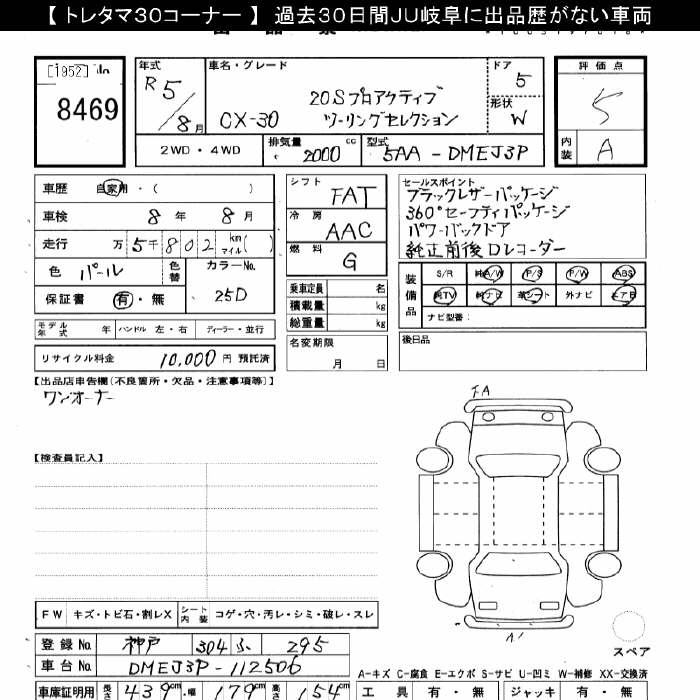 【 トレタマ30コーナー 】 過去30日間JU岐阜に出品歴がない車両
1952 No.
8469
年式 R5/8月
車名・グレード
CX-30 20Sプロアクティブ
ツーリングセレクション
ドア 5
形状 W
評価点 5
内装 A
2WD・4WD
排気量 2000 cc
型式 5AA-DMEJ3P
車歴 自家用・( )
車検 8年 8月
走行 万5千802 km マイル( )
色 パール 色替
カラーNo. 25D
保証書 有・無
モデル年式 年 ハンドル 左・右 ディーラー・並行
リサイクル料金 10,000円 預託済
シフト FAT
冷房 AAC
燃料 G
乗車定員 名
積載量 kg
総重量 kg
名変期限
月 日
セールスポイント
ブラックレザーパッケージ
360°セーフティパッケージ
パワーバックドア
純正前後Dレコーダー
装備品
S/R 純A/W P/S P/W ABS
純TV 純ナビ 革シート 外ナビ エアB
ナビ型番:
後日品
【出品店申告欄(不良箇所・欠品・注意事項等)】
ワンオーナー
【検査員記入】
FW キズ・トビ石・割レX シート内装 コゲ・穴・汚レ・シミ・破レ・スレ
登録No. 神戸 304 ふ 295
車台No. DMEJ3P-112506
車庫証明用 長さ 439cm 幅 179cm 高さ 154cm
スペア
A-キズ C-腐食 E-エクボ S-サビ U-凹ミ W-補修 XX-交換済
工具 有・無 ジャッキ 有・無